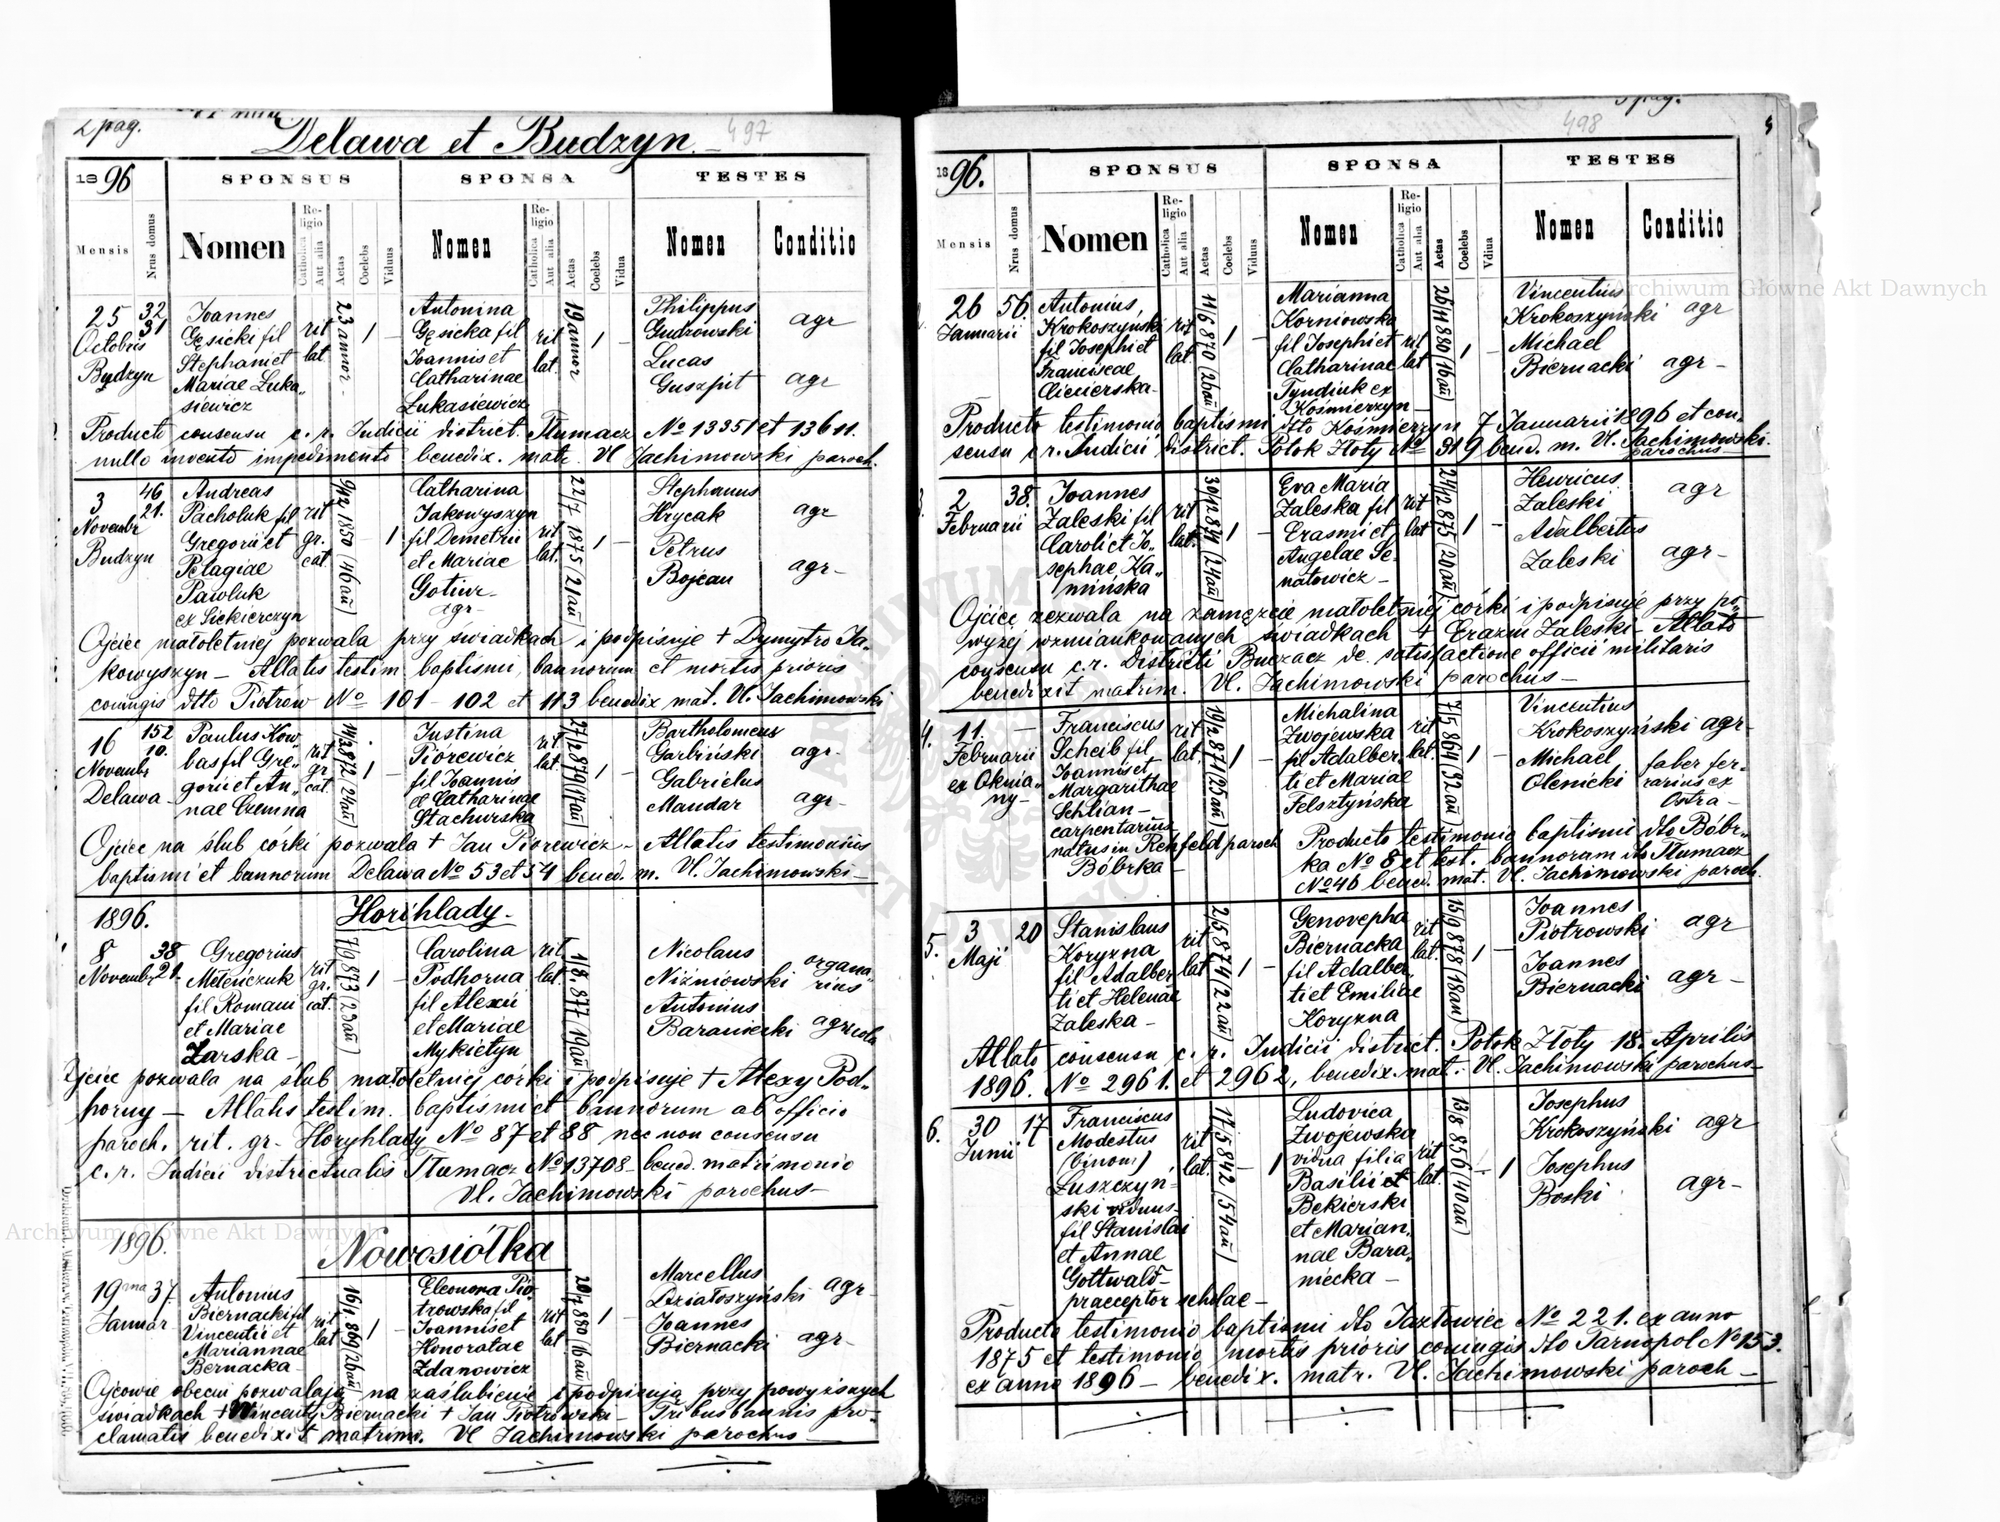 2 pag.
Delawa et Budzyn. 497
1896
SPONSUS SPONSA TESTES
Mensis Nrus domus Nomen Religio Catholica Aut alia Aetas Coelebs Viduus Nomen Religio Catholica Aut alia Aetas Coelebs Vidua Nomen Conditio
25 Octobris Budzyn
32 31
Joannes
Gęsicki fil
Stephani et
Mariae Łuka„
siewicz
rit lat.
23 annor.
1 –
Antonina
Gęsicka fil
Joannis et
Catharinae
Łukasiewicz
rit lat.
19 annor
1 –
Philippus
Gudzowski
agr
Lucas
Guszpit
agr
Producto consensu c. r. Judicii district. Tłumacz No 13351 et 13611.
nullo invento impedimento benedix. matr. Vl Jachimowski paroch.
3 Novembr Budzyn
46 21.
Andreas
Pacholuk fil
Gregorii et
Pelagiae
Pawluk
ex Siekierczyn
rit gr. cat.
9/12 1850 (46 añ)
– 1
Catharina
Jakowyszyn
fil Demetrii
et Mariae
Gotiur
agr–
rit lat.
22/7 1875 (21 añ)
1 –
Stephanus
Hrycak
agr
Petrus
Bojcan
agr–
Ojciec małoletniej pozwala przy świadkach i podpisuje + Dymytro Ja„
kowyszyn – Allatis testim baptismi, bannorum et mortis prioris
coniugis dtto Piotrów No 101 – 102 et 113 benedix mat. Vl. Jachimowski
16 Novembr Delawa
152 10.
Paulus Kow„
bas fil Gre„
gorii et An„
nae Czemna
rit gr. cat.
14/2 872 (24 añ)
1 –
Justina
Piórewicz
fil Joannis
et Catharinae
Stachurska
rit lat.
27/2 879 (17 añ)
1 –
Bartholomeus
Garliński
agr.
Gabrielus
Mandar
agr–
Ojciec na ślub córki pozwala + Jan Piórewicz – Allatis testimoniis
baptismi et bannorum Delawa No 53 et 54 bened. m. Vl. Jachimowski –
1896. Horihlady–
8 Novembr
38 21.
Gregorius
Meteńczuk
fil Romani
et Mariae
Żarska –
rit gr. cat.
7/9 873 (23 añ)
1 –
Carolina
Podhorna
fil Alexii
et Mariae
Mykietyn
rit lat.
1/8. 877 (19 añ)
1 –
Nicolaus
Niżniowski
organa„
rius
Antonius
Baraniecki
agricola
Ojciec pozwala na ślub małoletniej córki i podpisuje + Alexy Pod„
horny – Allatis testim. baptismi et bannorum ab officio
paroch. rit. gr– Horyhlady No 87 et 88 nec non consensu
c. r. Judicii districtualis Tłumacz No 13708– bened. matrimonio
Vl. Jachimowski parochus–
1896. Nowosiółka
19ma Januar
37.
Antonius
Biernacki fil
Vincentii et
Mariannae
Bernacka–
rit lat
16/1. 869 (26 añ)
1 –
Eleonora Pio„
trowska fil
Joannis et
Honoratae
Zdanowicz
rit lat.
20/2 880 (16 añ)
1 –
Marcellus
Działoszyński
agr–
Joannes
Biernacki
agr–
Ojcowie obecni pozwalają na zaślubienie i podpisują przy powyższych
świadkach + Wincenty Biernacki + Jan Piotrowski– Tribus bannis pro„
clamatis benedixit matrimo. Vl Jachimowski parochus–
3 pag.
498
1896.
SPONSUS SPONSA TESTES
Mensis Nrus domus Nomen Religio Catholica Aut alia Aetas Coelebs Viduus Nomen Religio Catholica Aut alia Aetas Coelebs Vidua Nomen Conditio
26 Januarii
56.
Antonius,
Krokoszynski
fil Josephi et
Franciscae
Cicierska–
rit lat.
11/6 870 (26 añ)
1 –
Marianna
Korniowska
fil Josephi et
Catharinae
Tyndiuk ex
Kośmierzyn –
rit lat
26/11 880 (16 añ)
1 –
Vincentius
Krokoszyński
agr
Michael
Biernacki
agr –
Producto testimonio baptismi dto Kośmierzyn 7 Januarii 1896 et con„
sensu c. r. Judicii district. Potok Złoty No 319 bened. m. Vl. Jachimowski
parochus–
3.
2 Februarii
38.
Joannes
Zaleski fil
Caroli et Jo„
sephae Ka„
mińska
rit lat.
30/12 871 (24 añ)
1 –
Eva Maria
Zaleska fil
Erasmi et
Angelae Se„
natowicz –
rit lat
24/12 875 (20 añ)
1 –
Henricus
Zaleski
agr
Adalbertus
Zaleski
agr–
Ojciec zezwala na zamęzcie małoletniej córki i podpisuje przy po„
wyżej wzmiankowanych świadkach + Erazm Zaleski – Allato
consensu c. r. Districti Buczacz de satisfactione officii militaris
benedixit matrim. Vl. Jachimowski parochus –
4.
11. Februarii ex Oknia„ny–
–
Franciscus
Scheib fil
Joannis et
Margarithae
Schlian –
carpentarius
natus in Rehfeld paroch
Bóbrka –
rit lat.
19/2 871 (25 añ)
1 –
Michalina
Zwojewska
fil Adalber„
ti et Mariae
Felsztyńska
rit lat.
7/5 864 (32 añ)
1 –
Vincentius
Krokoszyński
agr–
Michael
Olenicki
faber fer„
rarius ex
Ostra –
Producto testimonio baptismi dto Bóbr„
ka No 8 et test. bannorum dto Tłumacz
No 46 bened. mat. Vl. Jachimowski paroch.
5.
3 Maji
20
Stanislaus
Koryzna
fil Adalber„
ti et Helenae
Zaleska –
rit lat
2/5 874 (22 añ)
1 –
Genovepha
Biernacka
fil Adalber„
ti et Emiliae
Koryzna
rit lat.
15/9 878 (18 añ)
1 –
Joannes
Piotrowski
agr
Joannes
Biernacki
agr –
Allato consensu c. r. Judicii district. Potok Złoty 18. Aprilis
1896. No 2961. et 2962, benedix. mat. Vl. Jachimowski parochus–
6.
30 Junii
17
Franciscus
Modestus
(binom)
Łuszczyń–
ski viduus–
fil Stanislai
et Annae
Gottwald–
praeceptor scholae –
rit lat.
17/5 842 (54 añ)
– 1
Ludovica
Zwojewska
vidua filia
Basilii et
Bekierski
et Marian„
nae Bara„
niecka –
rit lat.
13/8 856 (40 añ)
– 1
Josephus
Krokoszyński
agr
Josephus
Boski
agr–
Producto testimonio baptismi dto Jazłowiec No 221. ex anno
1875 et testimonio mortis prioris coniugis dto Tarnopol No 153.
ex anno 1896 – benedix. matr. Vl. Jachimowski paroch –
Archiwum Główne Akt Dawnych
Archiwum Główne Akt Dawnych